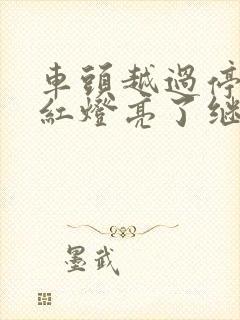 車頭越過停
紅燈亮了繼
墨武